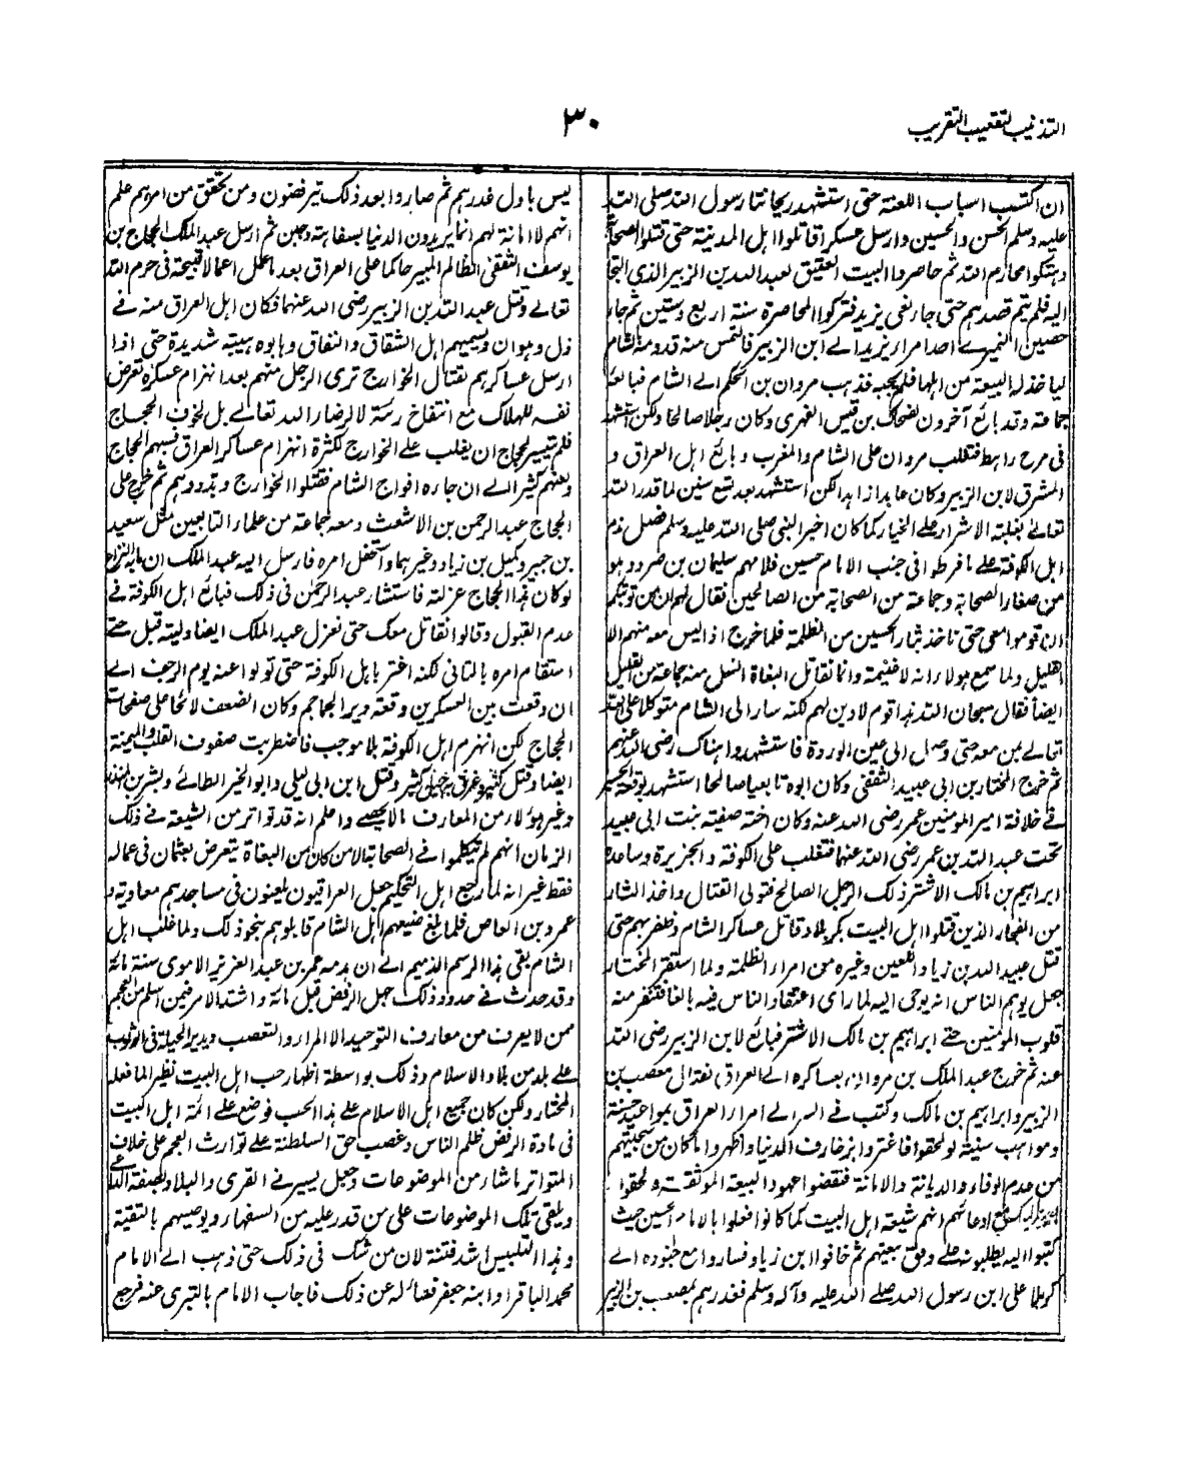 التذنيب لتعقيب التقريب
٣٠
ان اكتسب اسباب اللعنة حتى استشهد ريحانتا رسول الله صلى الله
عليه وسلم الحسن والحسين وارسل عسكرا قاتلوا اهل المدينة حتى قتلوا
وهتكوا محارم الله ثم حاصروا البيت العتيق لعبد الله بن الزبير الذي التجا
اليه فلم يتم قصدهم حتى جاء نعى يزيد فتركوا المحاصرة سنة اربع وستين ثم جاء
حصين النميرى احد امراء يزيد الى ابن الزبير فالتمس منه قدومه الشام
لياخذ له البيعة من اهلها فلم يجبه فذهب مروان بن الحكم الى الشام فبايعه
جماعة وقد بائع آخرون لضحاك بن قيس الفهرى وكان رجلا صالحا ولكن استشهد
فى مرج راهط فتغلب مروان على الشام والمغرب وبائع اهل العراق و
المشرق لابن الزبير وكان عابدا زاهدا لكن استشهد بعد تسع سنين لما قدر الله
تعالى بغلبة الاشرار على الخيار كما كان اخبر النبى صلى الله عليه وسلم فصل ندم
اهل الكوفة على ما فرطوا فى جنب الامام حسين فلامهم سليمان بن صرد وهو
من صغار الصحابة وجماعة من الصحابة من الصالحين فقال لهم ان من توبتكم
ان تقوموا معى حتى ناخذ بثار الحسين من الظلمة فلما خرج اذ ليس معه منهم الا
القليل ولما سمع هولاء انه لا غنيمة وانما نقاتل البغاة انسل منه جماعة من القليل
ايضا فقال سبحان الله هذا قوم لا دين لهم لكنه سار الى الشام متوكلا على الله
تعالى بمن معه حتى وصل الى عين الوردة فاستشهدوا هناك رضى الله عنهم
ثم خرج المختار بن ابى عبيد الثقفى وكان ابوه تابعيا صالحا استشهد بوقعة الجسر
فى خلافة امير المومنين عمر رضى الله عنه وكان اخته صفية بنت ابى عبيد
تحت عبد الله بن عمر رضى الله عنهما فتغلب على الكوفة والجزيرة وساعده
ابراهيم بن مالك الاشتر ذلك الرجل الصالح فتولى القتال واخذ الثار
من الفجار الذين قتلوا اهل البيت بكربلاء وقاتل عساكر الشام وظفر بهم حتى
قتل عبيد الله بن زياد اللعين وغيره من امراء الظلمة ولما استقر المختار
جعل يوهم الناس انه يوحى اليه لما راى اعتقاد الناس فيه بالغا فتنفر منه
قلوب المومنين حتى ابراهيم بن مالك الاشتر فبائع لابن الزبير رضى الله
عنه ثم خرج عبد الملك بن مروان بعساكره الى العراق لقتال مصعب بن
الزبير وابراهيم بن مالك وكتب فى السر الى امراء العراق بمواعيد حسنة
ومواهب سنية لو لحقوا فاغتروا بزخارف الدنيا واظهروا ما كان من سجيتهم
من عدم الوفاء والديانة والامانة فنقضوا عهود البيعة الموثقة ولحقوا
مع ادعائهم انهم شيعة اهل البيت كما كانوا فعلوا بالامام الحسين حيث
كتبوا اليه يطلبونه على وفق بيعتهم ثم خافوا ابن زياد فساروا مع جنوده الى
كربلا على ابن رسول الله صلى الله عليه وآله وسلم فغدرهم بمصعب بن الزبير
ليس باول غدرهم ثم صاروا بعد ذلك يترفضون ومن تحقق من امرهم علم
انهم لا امانة لهم انما يريدون الدنيا بسفاهة وجبن ثم ارسل عبد الملك الحجاج بن
يوسف الثقفى الظالم المبير حاكما على العراق بعد ما عمل اعمالا قبيحة فى حرم الله
تعالى وقتل عبد الله بن الزبير رضى الله عنهما فكان اهل العراق منه فى
ذل وهوان ويسميهم اهل الشقاق والنفاق وهابوه هيبة شديدة حتى اذا
ارسل عساكرهم لقتال الخوارج ترى الرجل منهم بعد انهزام عسكره تعرض
نفسه للهلاك مع انتفاخ رئته لا لرضاء الله تعالى بل لخوف الحجاج
فلم يتيسر لحجاج ان يغلب على الخوارج لكثرة انهزام عساكر العراق فسبهم الحجاج
ولعنهم كثيرا الى ان جاءه افواج الشام فقتلوا الخوارج وبددوهم ثم خرج على
الحجاج عبد الرحمن بن الاشعث ومعه جماعة من علماء التابعين مثل سعيد
بن جبير وكميل بن زياد وغيرهما واستفحل امره فارسل اليه عبد الملك ان ما به النزاع
لو كان هذا الحجاج عزلته فاستشار عبد الرحمن فى ذلك فبائع اهل الكوفة فى
عدم القبول وقالوا نقاتل معك حتى نعزل عبد الملك ايضا وليته قبل حتى
استقام امره بالتانى لكنه اغتر باهل الكوفة حتى تولوا عنه يوم الزحف الى
ان وقعت بين العسكرين وقعة دير الجماجم وكان الضعف لائحا على صفحات
الحجاج لكن انهزم اهل الكوفة بلا موجب فاضطربت صفوف القلب والميمنة
ايضا وقتل كثير وغرق كثير وقتل ابن ابى ليلى وابو الخير الطائى
وغير هؤلاء من المعارف ما لا يحصى واعلم انه قد تواتر من الشيعة فى ذلك
الزمان انهم لم يتكلموا فى الصحابة الا من كان من البغاة يتعرض بعثمان فى عماله
فقط غير انه لما رجع اهل التحكيم جعل العراقيون يلعنون فى مساجدهم معاوية و
عمرو بن العاص فلما بلغ ضيعهم اهل الشام قابلوهم بنحو ذلك ولما غلب اهل
الشام بقى هذا الرسم الذميم الى ان هدمه عمر بن عبد العزيز الاموى سنة مائة
وقد حدث فى حدود ذلك جبل الرفض قبل مائة واشتد الامر فيمن اسلم من العجم
ممن لا يعرف من معارف التوحيد الا المراء والتعصب ويدير الحيلة فى الوثوب
على بلد من بلاد الاسلام وذلك بواسطة اظهار حب اهل البيت نظير ما فعله
المختار ولكن كان جميع اهل الاسلام على هذا الحب فوضع على ائمة اهل البيت
فى مادة الرفض ظلم الناس وغصب حق السلطنة على توارث العجم على خلاف
المتواتر ما شاء من الموضوعات وجعل يسير فى القرى والبلاد
ويلقى تلك الموضوعات على من قدر عليه من السفهاء ويوصيهم بالتقية
وهذا التلبيس اشد فتنة لان من شك فى ذلك حتى ذهب الى الامام
محمد الباقر او ابنه جعفر فسائله عن ذلك فاجاب الامام بالتبرى عنه فرجع